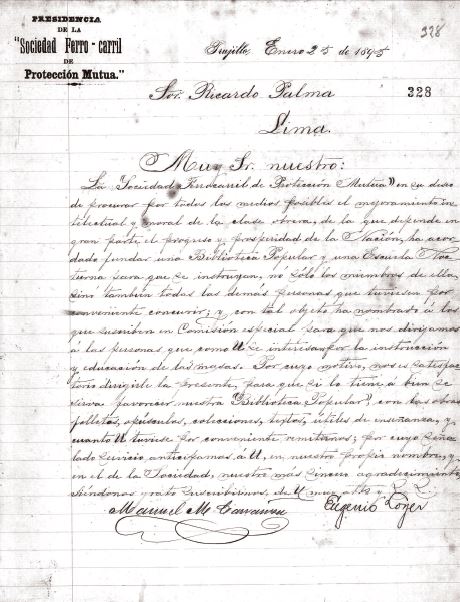 PRESIDENCIA
DE LA
"Sociedad Ferro-carril
DE
Protección Mutua."
328
Trujillo, Enero 25 de 1895
Sor. Ricardo Palma
328
Lima.
Muy Sr. nuestro:
La "Sociedad Ferrocarril de Protección Mutua" en su deseo
de procurar por todos los medios posibles el mejoramiento in-
telectual y moral de la clase obrera, de la que depende en
gran parte el progreso y prosperidad de la Nación, ha acor-
dado fundar una Biblioteca Popular y una Escuela Noc-
turna para que se instruyan, no sólo los miembros de ella,
sino también todas las demás personas que tuviesen por
conveniente concurrir; y con tal objeto ha nombrado á los
que suscriben en Comisión especial para que nos dirijamos
á las personas que como U se interesan por la instrucción
y educación de las masas. Por cuyo motivo, nos es satisfac-
torio dirigirle la presente, para que si lo tiene á bien se
sirva favorecer nuestra "Biblioteca Popular", con las obras
folletos, opúsculos, colecciones, textos, útiles de enseñanza, y
cuanto U tuviese por conveniente remitirnos; por cuyo seña-
lado servicio anticipamos á U, en nuestro propio nombre, y
en el de la Sociedad, nuestro más sincero agradecimiento,
siéndonos grato suscribirnos, de U muy atto y S. S.
Manuel M.
Eugenio